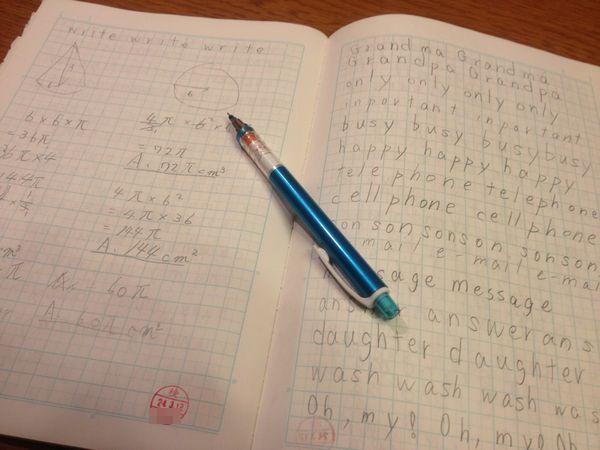 write write write
6
6×6×π
=36π
36π×4
144π
4/3 π × 6³
=72π
A. 72π cm³
4π×6²
=4π×36
=144π
A. 144 cm²
60π
A. 60π cm²
Grandma Grandma
Grandpa Grandpa
only only only only
inportant inportant
busy busy busy busy
happy happy happy
telephone telephone
cellphone cellphone
son son son son son
e-mail e-mail
message
answer ans
daughter daughter
wash wash wash was
Oh, my! Oh, my! Oh